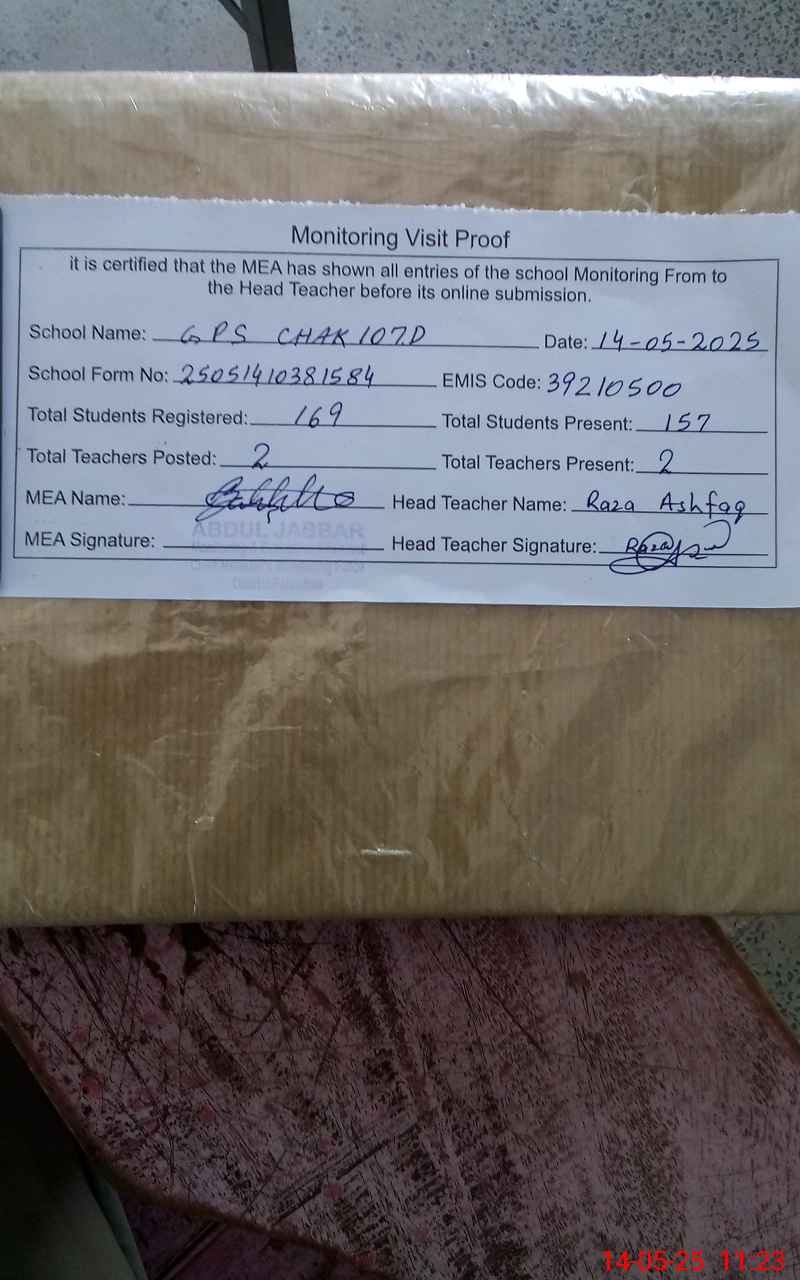 Monitoring Visit Proof
it is certified that the MEA has shown all entries of the school Monitoring From to
the Head Teacher before its online submission.
School Name: GPS CHAK 107D Date: 14-05-2025
School Form No: 25051410381584 EMIS Code: 39210500
Total Students Registered: 169 Total Students Present: 157
Total Teachers Posted: 2 Total Teachers Present: 2
MEA Name: Head Teacher Name: Raza Ashfaq
ABDUL JABBAR
MEA Signature: Head Teacher Signature: Raza
14-05-25 11:23